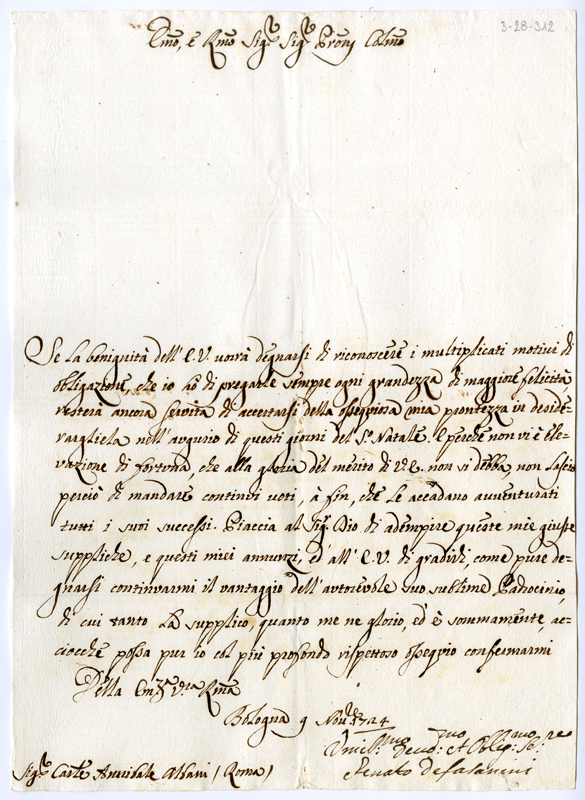 3-28-312
Emo, e Rmo Sigr Sigr Pron Colmo
Se la benignità dell' E.V. vorrà degnarsi di riconoscere i multiplicati motivi di
obligazione, che io hò di pregarle sempre ogni grandezza di maggiore felicità
resterà ancora servita di accertarsi della ossequiosa mia prontezza in deside-
rargliela nell'augurio di questi giorni del So Natale. E perche non vi è ele-
vazione di fortuna, che alla gloria del merito di V.E. non si debba, non lascio
perciò di mandare continui voti, à fin, che le accadano avventurati
tutti i suoi successi. Piaccia al Sigr Dio di adempire queste mie giuste
suppliche, e questi miei annunzi, ed all' E.V. di gradirli, come pure de-
gnarsi continuarmi il vantaggio dell'autorevole suo sublime Padrocinio,
di cui tanto La supplico, quanto me ne glorio, ed è sommamente, ac-
ciocche possa pur io col più profondo rispettoso ossequio confermarmi
Della Emza Vra Rma
Bologna 9 Nov. 1724
Umilmo Devmo et Obligmo Sere
Renato
Sigr Carle Annibale Albani (Roma)